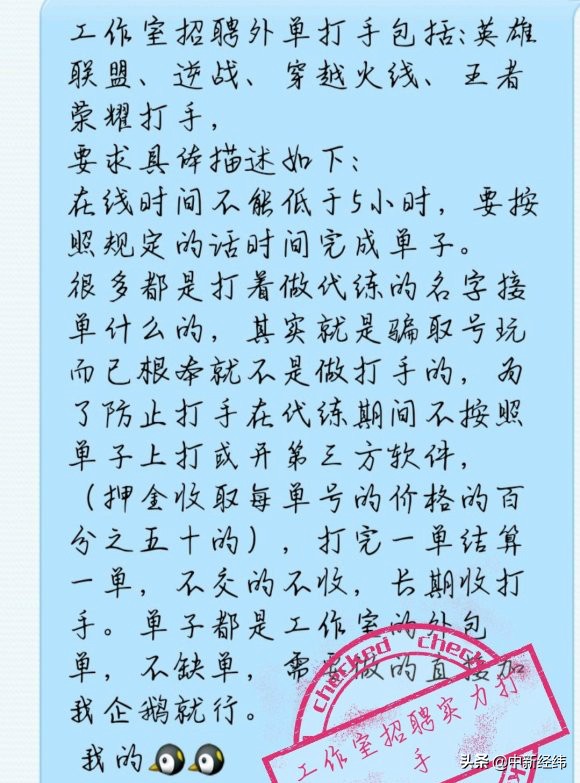 工作室招聘外单打手包括:英雄
联盟、逆战、穿越火线、王者
荣耀打手，
要求具体描述如下：
在线时间不能低于5小时，要按
照规定的话时间完成单子。
很多都是打着做代练的名字接
单什么的，其实就是骗取号玩
而已根本就不是做打手的，为
了防止打手在代练期间不按照
单子上打或开第三方软件，
（押金收取每单号的价格的百
分之五十的），打完一单结算
一单，不交的不收，长期收打
手。单子都是工作室的外包
单，不缺单，需要做的直接加
我企鹅就行。
我的
checked check
工作室招聘实力打
手
头条 @中新经纬